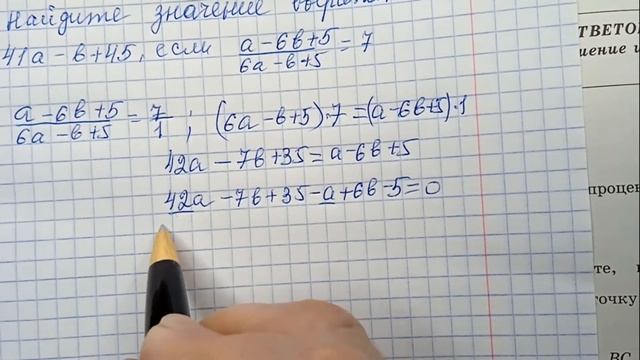 найдите значение
41a - b + 45, если (a - 6b + 5)/(6a - b + 5) = 7
(a - 6b + 5)/(6a - b + 5) = 7/1 ; (6a - b + 5)·7 = (a - 6b + 5)·1
42a - 7b + 35 = a - 6b + 5
42a - 7b + 35 - a + 6b - 5 = 0
ОТВЕТО
шение и
процен
те,
очку
ВС